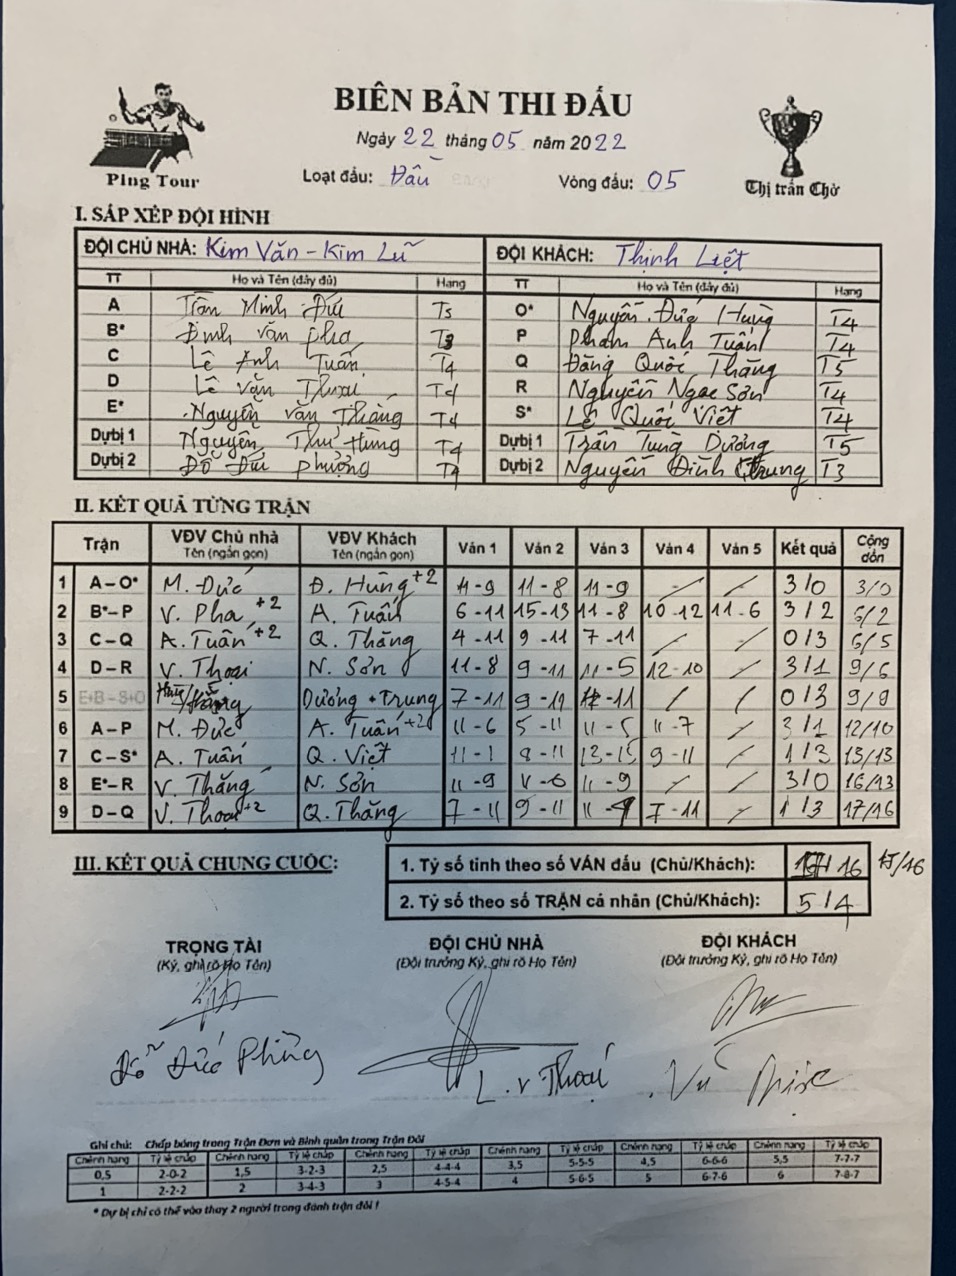 BIÊN BẢN THI ĐẤU
Ngày 22 tháng 05 năm 2022
Ping Tour
Loạt đấu: Đầu Vòng đấu: 05
Thị trấn Chờ
I. SẮP XẾP ĐỘI HÌNH
ĐỘI CHỦ NHÀ: Kim Văn - Kim Lũ ĐỘI KHÁCH: Thịnh Liệt
TT Họ và Tên (đầy đủ) Hạng TT Họ và Tên (đầy đủ) Hạng
A Trần Minh Đức T5 O* Nguyễn Đức Hùng T4
B* Đinh Văn Pha T3 P Phạm Anh Tuấn T4
C Lê Anh Tuấn T4 Q Đặng Quốc Thăng T5
D Lê Văn Thoại T4 R Nguyễn Ngọc Sơn T4
E* Nguyễn Văn Thắng T4 S* Lê Quốc Việt T4
Dự bị 1 Nguyễn Thư Hùng T4 Dự bị 1 Trần Tùng Dương T5
Dự bị 2 Đỗ Đức Phượng T4 Dự bị 2 Nguyễn Đình Trung T3
II. KẾT QUẢ TỪNG TRẬN
Trận VĐV Chủ nhà Tên (ngắn gọn) VĐV Khách Tên (ngắn gọn) Ván 1 Ván 2 Ván 3 Ván 4 Ván 5 Kết quả Cộng dồn
1 A – O* M. Đức Đ. Hùng +2 11-9 11-8 11-9 / / 3/0 3/0
2 B* – P V. Pha +2 A. Tuấn 6-11 15-13 11-8 10-12 11-6 3/2 6/2
3 C – Q A. Tuấn +2 Q. Thăng 4-11 9-11 7-11 / / 0/3 6/5
4 D – R V. Thoại N. Sơn 11-8 9-11 11-5 12-10 / 3/1 9/6
5 E+B – S+O Dương + Trung 7-11 / / 0/3 9/9
6 A – P M. Đức A. Tuấn +2 11-6 5-11 11-5 11-7 / 3/1 12/10
7 C – S* A. Tuấn Q. Việt 11-1 8-11 13-15 9-11 / 1/3 13/13
8 E* – R V. Thắng N. Sơn 11-9 11-9 / / 3/0 16/13
9 D – Q V. Thoại +2 Q. Thăng 7-11 9-11 7-11 / 1/3 17/16
III. KẾT QUẢ CHUNG CUỘC:
1. Tỷ số tính theo số VÁN đấu (Chủ/Khách): 16
2. Tỷ số theo số TRẬN cá nhân (Chủ/Khách): 5/4
TRỌNG TÀI ĐỘI CHỦ NHÀ ĐỘI KHÁCH
(Ký, ghi rõ Họ Tên) (Đội trưởng Ký, ghi rõ Họ Tên) (Đội trưởng Ký, ghi rõ Họ Tên)
Đỗ Đức Phượng L. V Thoại Vũ
Ghi chú: Chấp bóng trong Trận Đơn và Bình quân trong Trận Đôi
Chênh hạng Tỷ lệ chấp Chênh hạng Tỷ lệ chấp Chênh hạng Tỷ lệ chấp Chênh hạng Tỷ lệ chấp Chênh hạng Tỷ lệ chấp Chênh hạng Tỷ lệ chấp
0,5 2-0-2 1,5 3-2-3 2,5 4-4-4 3,5 5-5-5 4,5 6-6-6 5,5 7-7-7
1 2-2-2 2 3-4-3 3 4-5-4 4 5-6-5 5 6-7-6 6 7-8-7
* Dự bị chỉ có thể vào thay 2 người trong đánh trận đôi !